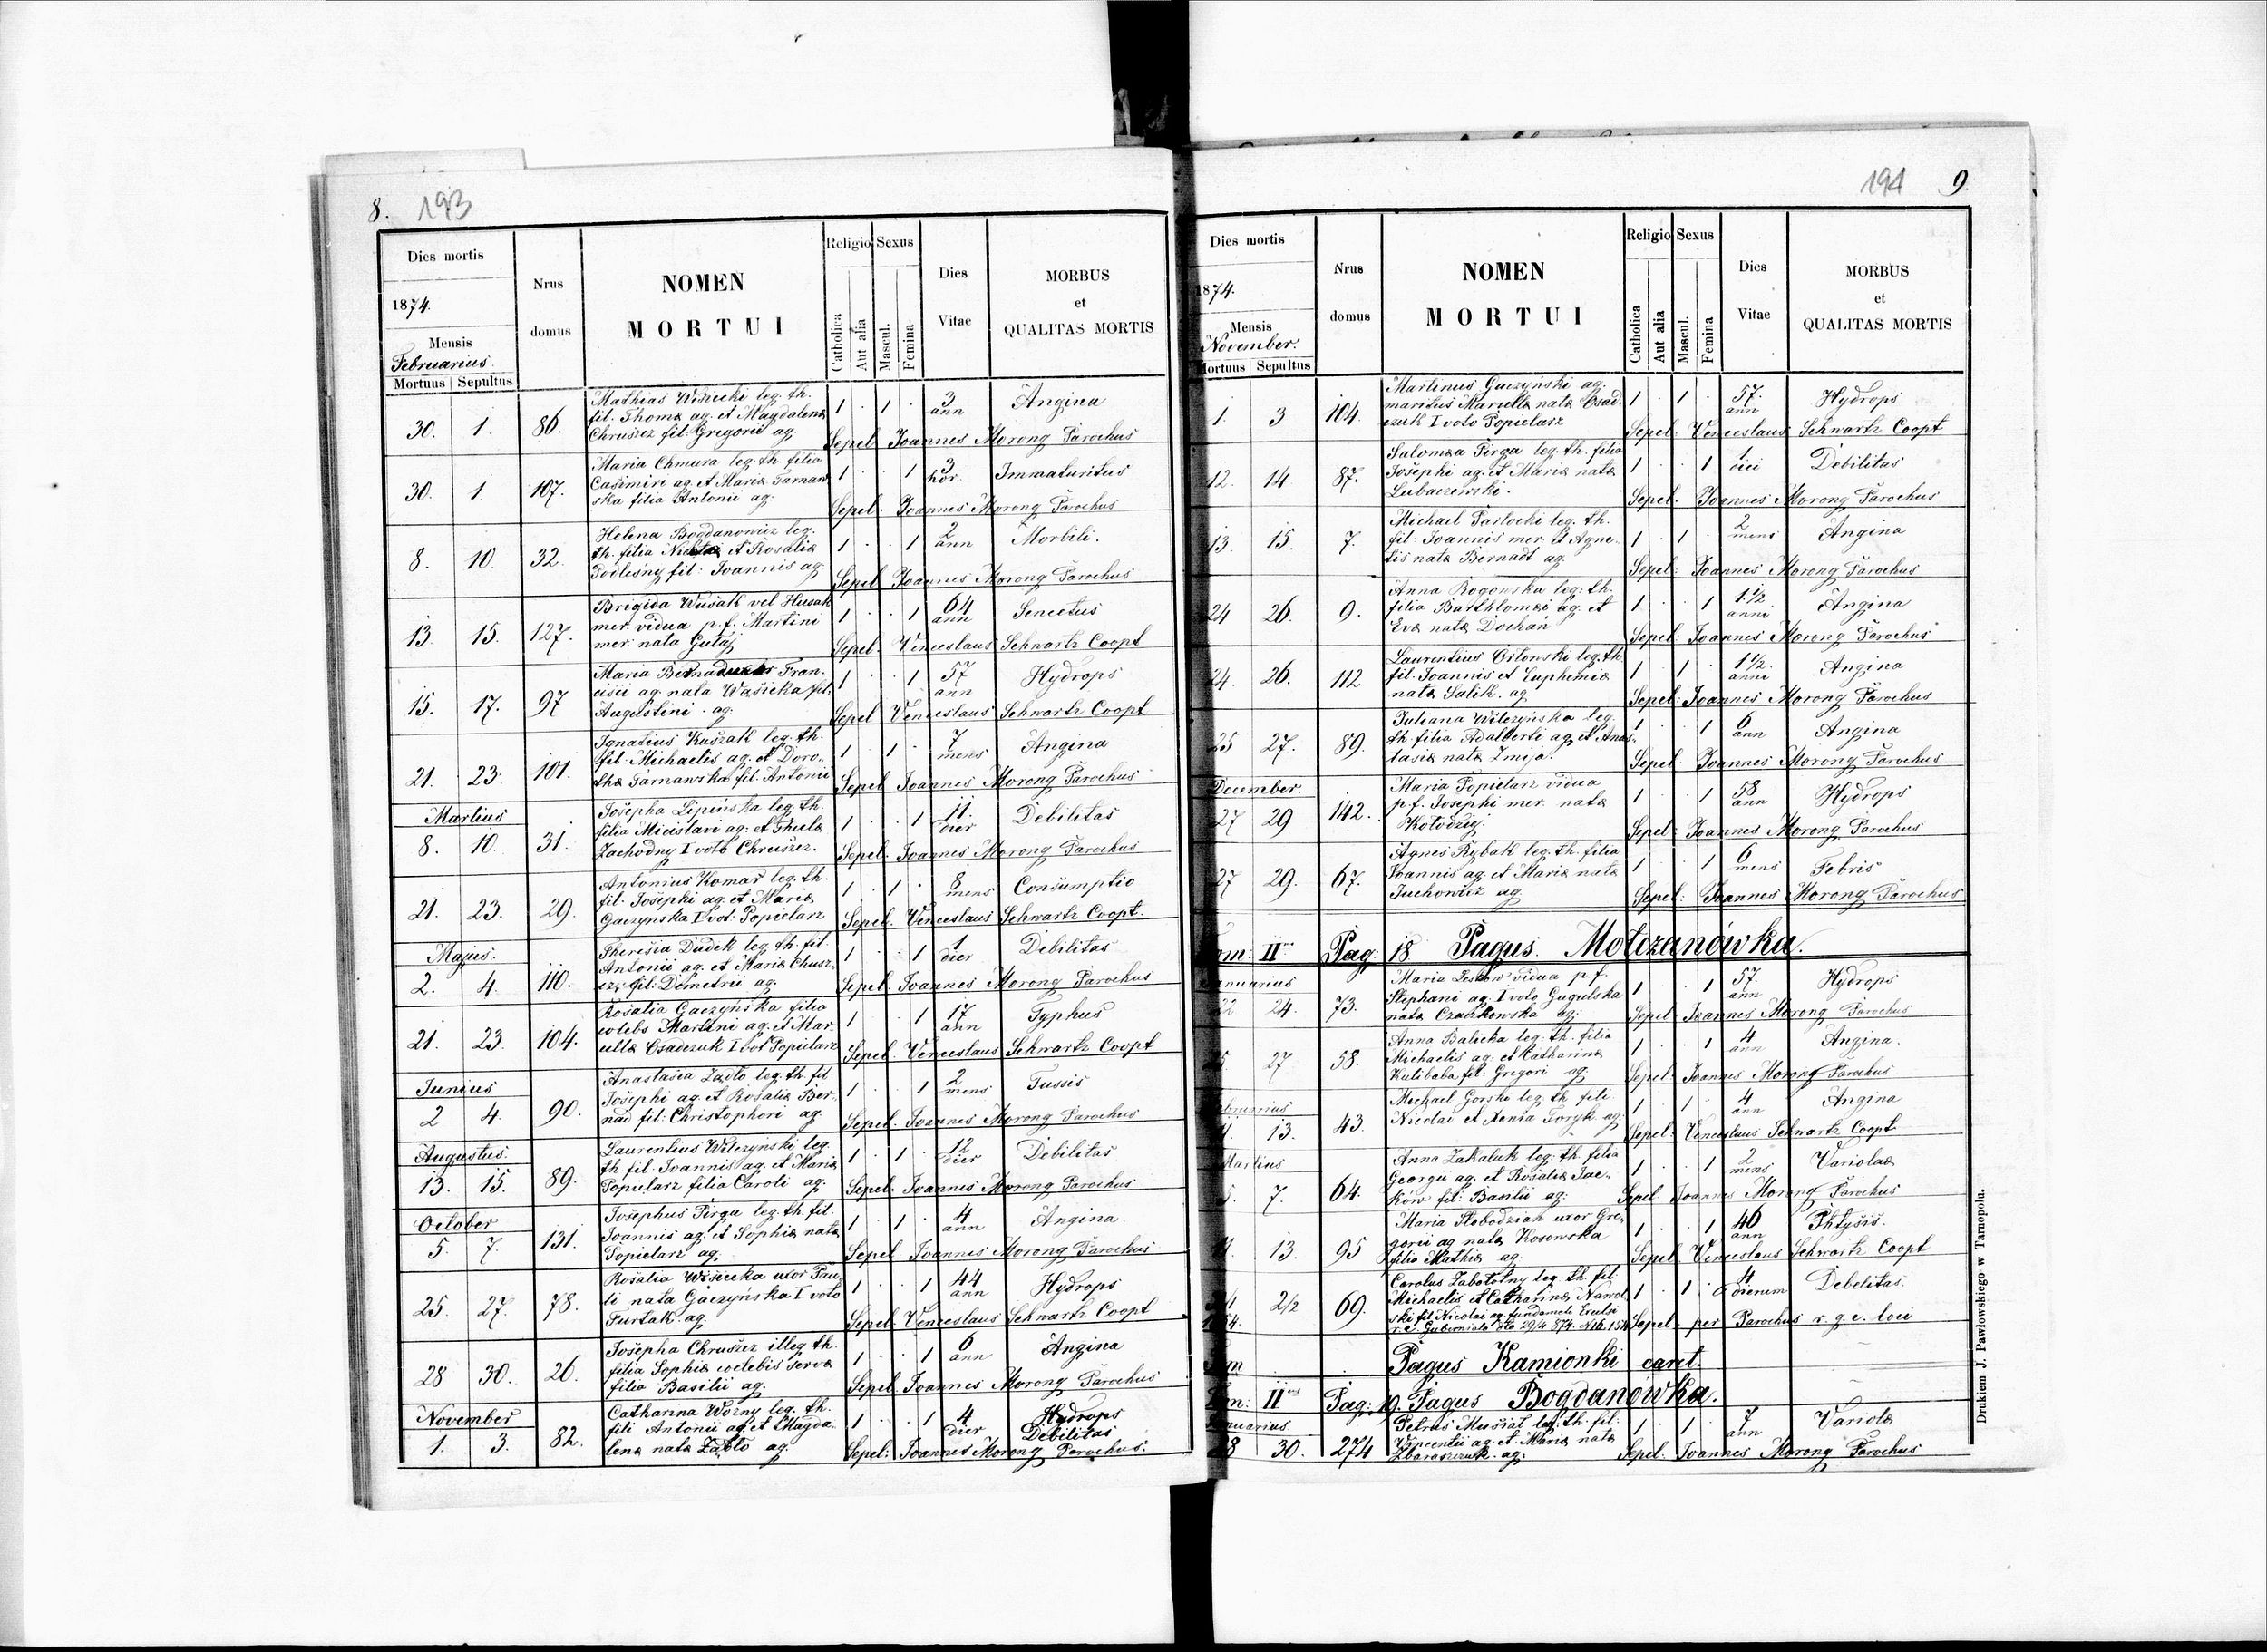 8. 193
Dies mortis
1874.
Mensis
Februarius.
Mortuus Sepultus
Nrus
domus
NOMEN
MORTUI
Religio
Catholica
Aut alia
Sexus
Mascul.
Femina
Dies
Vitae
MORBUS
et
QUALITAS MORTIS
30. 1. 86. Mathias Wósiecki leg. th.
fil. Thomæ ag. et Magdalena
Chruszcz fil: Gregorii ag.
1 · 1 · 3 ann Angina
Sepel Joannes Morong Parochus
30. 1. 107. Maria Chmura leg: th. filia
Casimiri ag. et Mariæ Tarnaw
ska filia Antonii ag:
1 · · 1 3 hor. Immaturitus
Sepel. Joannes Morong Parochus
8. 10. 32. Helena Bogdanowicz leg.
th. filia et Rosaliæ
Podleśny fil: Joannis ag.
1 · · 1 2 ann Morbili.
Sepel Joannes Morong Parochus
13. 15. 127. Brigida Wusak vel Husak
mer. vidua p. f. Martini
mer. nata Gutáj
1 · · 1 64 ann Senectus
Sepel. Venceslaus Schwartz Coopt
15. 17. 97 Maria Fran.
cisii ag. nata Wasicka fil.
Augustini . ag.
1 · · 1 57 ann Hydrops
Sepel Venceslaus Schwartz Coopt
21. 23. 101. Ignatius Kuszak leg. th.
fil. Michaelis ag. et Doro„
thæ Tarnawska fil. Antonii
1 · 1 · 7 mens Angina
Sepel Joannes Morong Parochus
Martius
8. 10. 31. Josepha Lipińska leg. th.
filia Micislavi ag: et Thecla
Zachodny I voto Chruszcz.
1 · · 1 11. dier Debilitas
Sepel. Joannes Morong Parochus
21. 23. 29. Antonius Komar leg. th.
fil. Josephi ag. et Mariæ
Gaczynska I vot. Popielarz
1 · 1 · 8 mens Consumptio
Sepel. Venceslaus Schwartz Coopt.
Majus.
2. 4. 110. Theresia Dudek leg. th. fil.
Antonii ag. et Mariæ Chusz„
cz, fil: Demetrii ag.
1 · · 1 1 dier Debilitas
Sepel. Joannes Morong Parochus
21. 23. 104. Rosalia Gaczyńska filia
coelebs Martini ag. et Mar
cellæ Osadczuk I vot Popielarz
1 · · 1 17 ann Typhus
Sepel. Venceslaus Schwartz Coopt
Junius
2 4. 90. Anastasia Zadło leg. th. fil
Josephi ag. et Rosaliæ Ber„
nad fil. Christophori ag.
1 · · 1 2 mens Tussis
Sepel. Joannes Morong Parochus
Augustus.
13. 15. 89. Laurentius Wilczyński leg.
th. fil. Joannis ag. et Mariæ
Popielarz filia Caroli ag.
1 · 1 · 12 dier Debilitas
Sepel. Joannes Morong Parochus
October
5. 7. 131. Josephus Pirga leg. th. fil.
Joannis ag. et Sophiæ natæ
Popielarz ag.
1 · 1 · 4 ann Angina.
Sepel Joannes Morong Parochus
25. 27. 78. Rosalia Wósiecka uxor Pau
li nata Gaczyńska I voto
Furtak. ag.
1 · · 1 44 ann Hydrops
Sepel. Venceslaus Schwartz Coopt
28 30. 26. Josepha Chruszcz illeg th.
filia Sophiæ coelebis servæ
filia Basilii ag.
1 · · 1 6 ann Angina
Sepel. Joannes Morong Parochus
November
1. 3. 82. Catharina Wozny leg. th.
fili Antonii ag. et Magda
lena nata Zadło ag.
1 · · 1 4 dier Hydrops
Debilitas
Sepel: Joannes Morong Parochus.
194 9.
Dies mortis
1874.
Mensis
November.
Mortuus Sepultus
Nrus
domus
NOMEN
MORTUI
Religio
Catholica
Aut alia
Sexus
Mascul.
Femina
Dies
Vitae
MORBUS
et
QUALITAS MORTIS
1. 3 104. Martinus Gaczyński ag.
maritus Marcellæ natæ Osad.
czuk I voto Popielarz
1 · 1 · 57. ann Hydrops
Sepel. Venceslaus Schwartz Coopt
12. 14 87. Salomæa Pirga leg. th. filia
Josephi ag. et Mariæ natæ
Lubaczewski.
1 · · 1 1 Debilitas
Sepel. Joannes Morong Parochus
13. 15. 7. Michael Parlocki leg. th.
fil. Joannis mer. et Agne.
tis nata Bernadt ag.
1 · 1 · 2 mens Angina
Sepel: Joannes Morong Parochus
24 26. 9. Anna Rogowska leg: th.
filia Barthlomæi ag. et
Evæ natæ Dochan
1 · · 1 1 1/2 anni Angina
Sepel: Joannes Morong Parochus
24. 26. 112 Laurentius Orlowski leg. th
fil. Joannis et Euphemiæ
natæ Salik. ag.
1 · 1 · 1 1/2. anni Angina
Sepel: Joannes Morong Parochus
25 27. 89. Juliana Wilczyńska leg.
th. filia Adalberti ag. et Anas„
tasiæ natæ Zmija.
1 · · 1 6 ann Angina
Sepel. Joannes Morong Parochus
December.
27 29 142. Maria Popielarz vidua
p. f. Josephi mer. nata
Kołodzij.
1 · · 1 58 ann Hydrops
Sepel: Joannes Morong Parochus
27 29. 67. Agnes Rybak leg. th. filia
Joannis ag. et Mariæ nata
Juchowicz ag.
1 · · 1 6 mens Febris
Sepel: Joannes Morong Parochus
om: II Pag: 18 Pagus. Motczanówka.
anuarius
22 24. 73. Maria vidua p. f.
Stephani ag. I voto Gugulska
nata Czaikowska ag:
1 · · 1 57. ann Hydrops
Sepel. Joannes Morong Parochus
5 27 58. Anna Balicka leg: th. filia
Michaelis ag: et Katharinæ
Kulibaba fil: Gregori ag.
1 · · 1 4 ann Angina.
Sepel. Joannes Morong Parochus
bruarius
11. 13. 43. Michael Gorski leg. th. fili
Nicolai et Xenia Toryk ag:
1 · 1 · 4 ann Angina
Sepel. Venceslaus Schwartz Coopt
Martius
5. 7. 64. Anna Zakaluk leg. th. filia
Georgii ag. et Rosaliæ Jac„
ków fil: Basilii ag:
1 · · 1 2 mens Variolae
Sepel Joannes Morong Parochus
11. 13. 95 Maria Slobodzian uxor Gre„
gorii ag nata Kosowska
filia Mathiæ ag.
1 · · 1 46 ann Phtysis.
Sepel. Venceslaus Schwartz Coopt
2/2 69. Carolus Zabolotny leg. th. fil.
Michaelis et Catharinæ Nawol
ski fil. Nicolai ag. fundamete
r. c. Guberniale dto 29/4 874.
1 · 1 · 4 Debelitas.
Sepel per Parochus r. g. c. loci
Pagus Kamionki caret.
om: II Pag: 19. Pagus Bogdanówka.
nuarius.
28 30. 274 Petrus Musiat leg: th. fil:
Vincentii ag. et Mariæ natæ
Zbaraszczuk. ag.
1 · 1 · 7 ann Variolæ
Sepel. Joannes Morong Parochus
Drukiem J. Pawłowskiego w Tarnopolu.